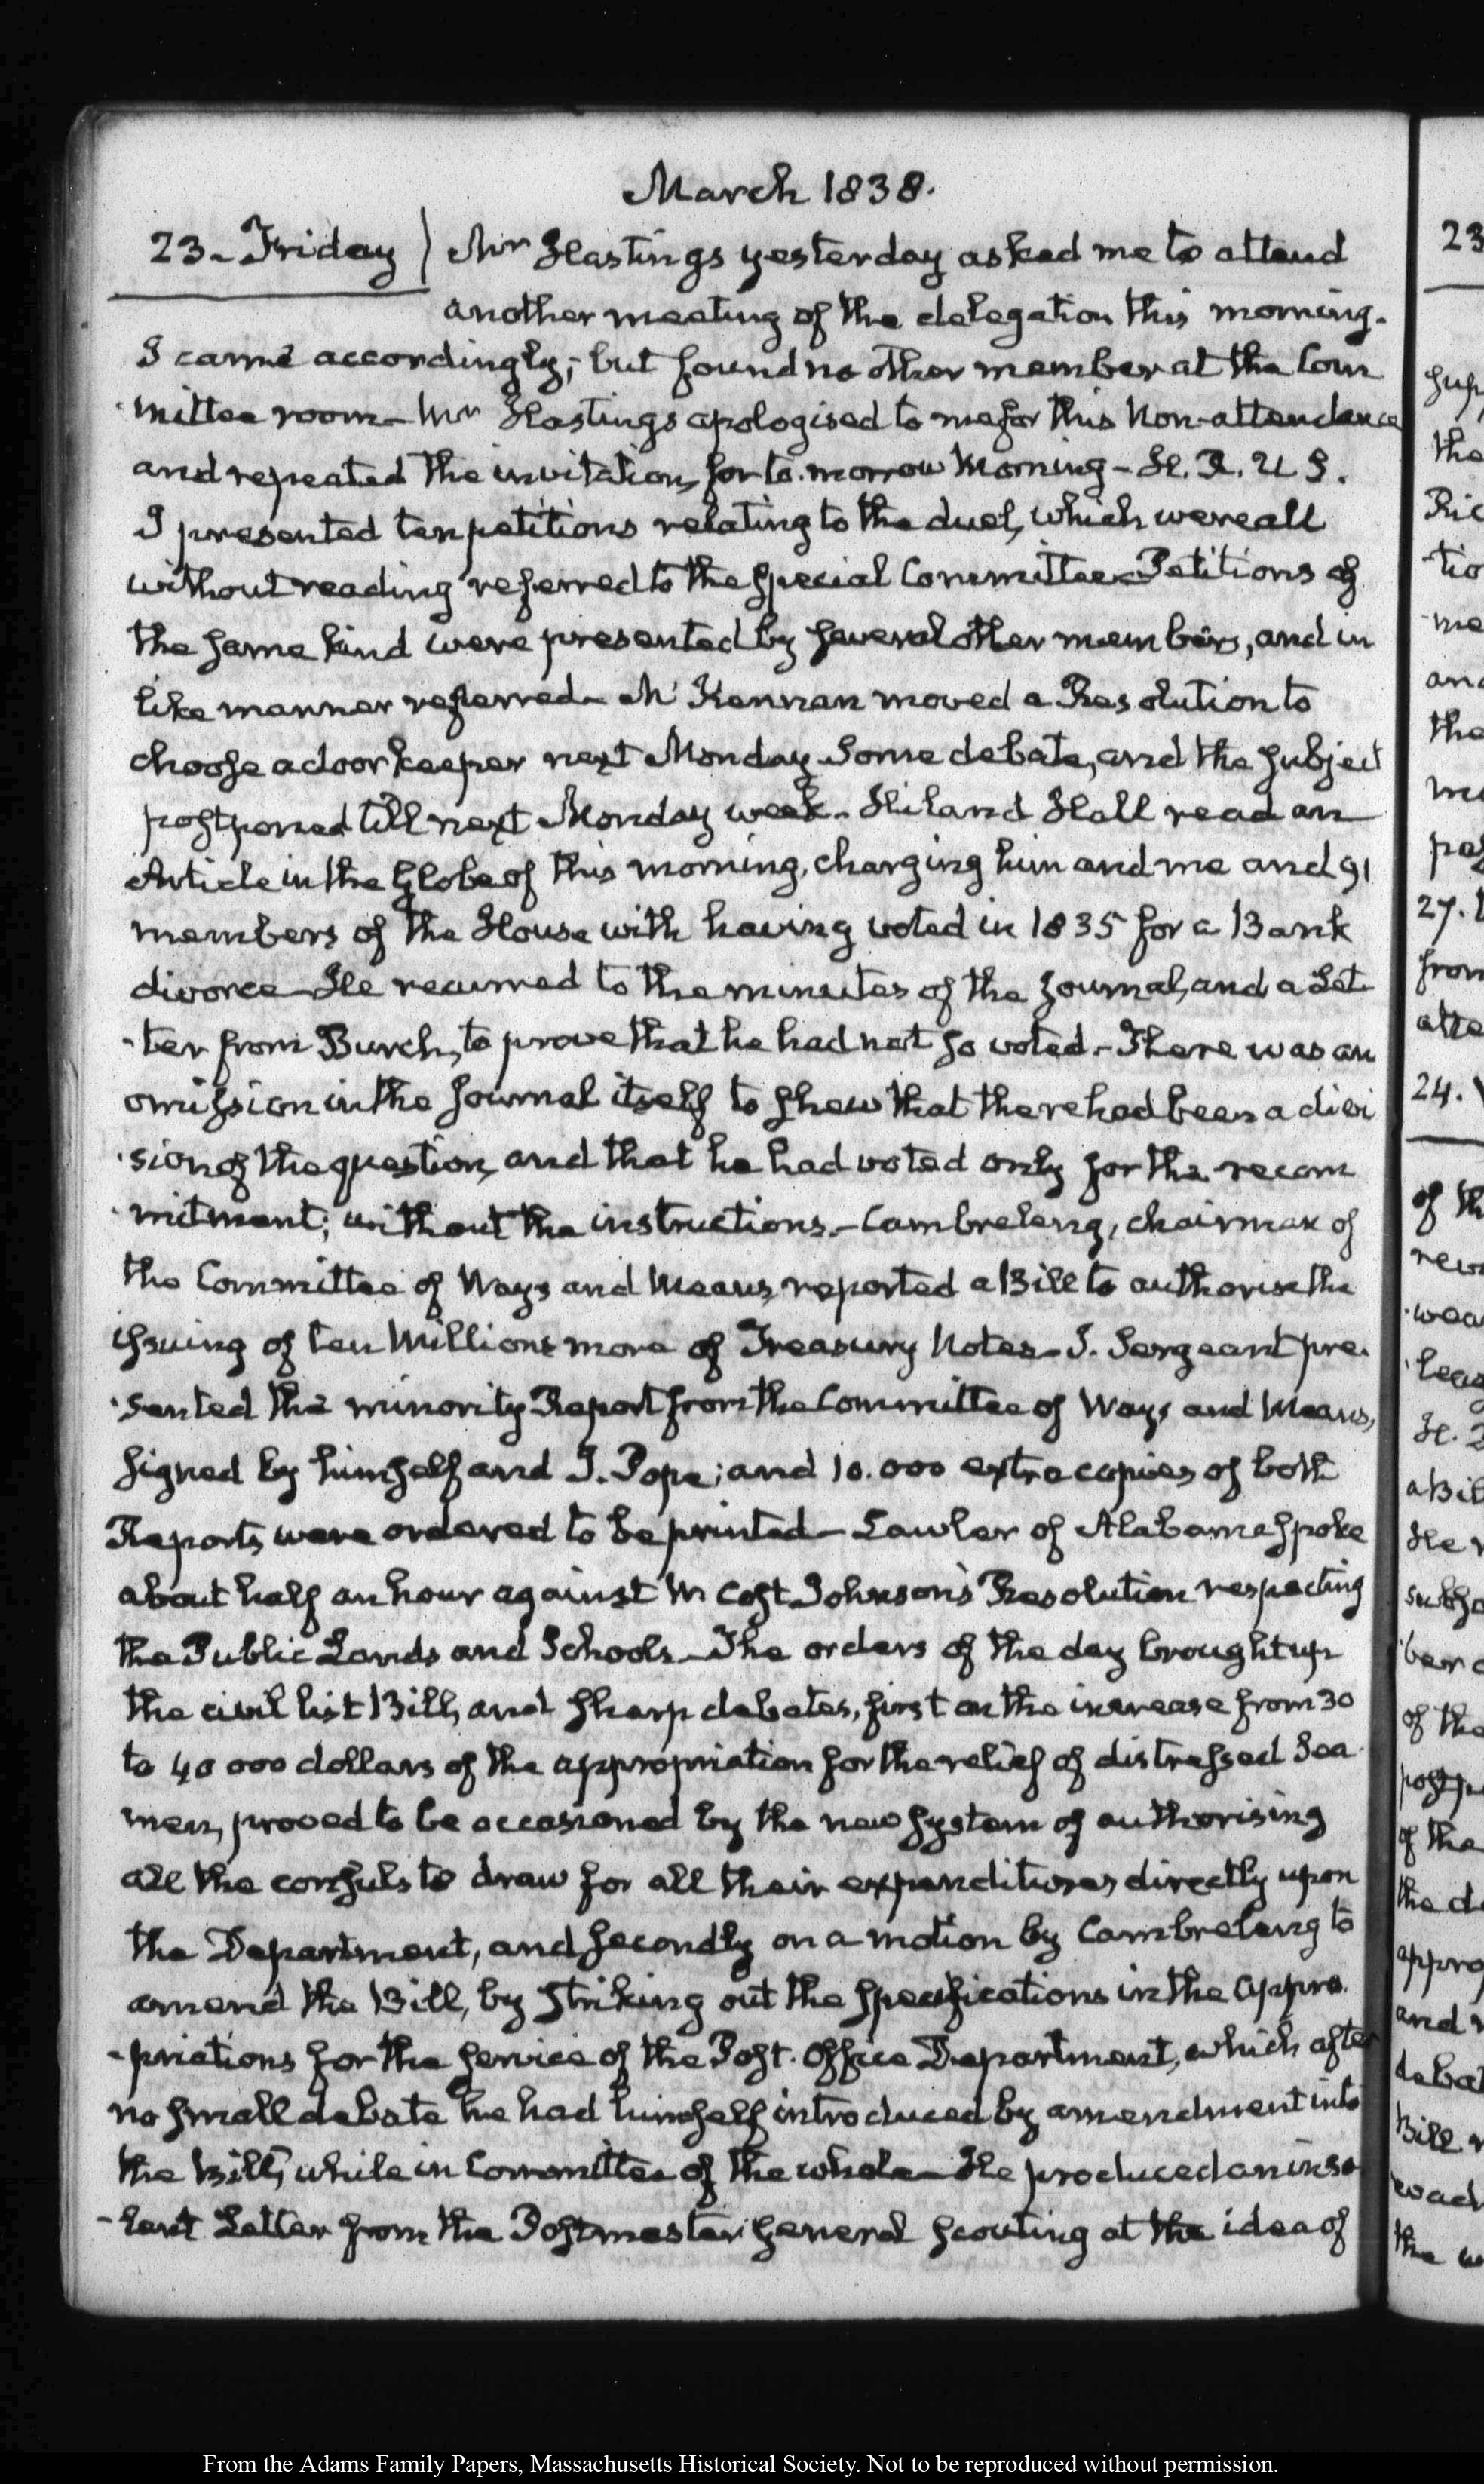 March 1838.
23. Friday) Mr Hastings yesterday asked me to attend
another meeting of the delegation this morning.
I came accordingly; but found no other member at the Com
mittee room. Mr Hastings apologised to me for this Non-attendance
and repeated the invitation, for to-morrow Morning - H. R. U S.
I presented ten petitions relating to the duel, which were all
without reading referred to the special Committee - Petitions of
the same kind were presented by several other members, and in
like manner referred - McKennan moved a Resolution to
choose a doorkeeper next Monday. Some debate, and the subject
postponed till next Monday week - Hiland Hall read an
Article in the Globe of this morning, charging him and me and 91
members of the House with having voted in 1835 for a Bank
divorce - He recurred to the minutes of the Journal, and a Let
-ter from Burch, to prove that he had not so voted - There was an
omission in the Journal itself to shew that there had been a divi
-sion of the question, and that he had voted only for the recom
-mitment; without the instructions. - Cambreleng, chairman of
the Committee of Ways and Means, reported a Bill to authorise the
issuing of ten Millions more of Treasury Notes - J. Sergeant pre-
-sented the minority Report from the Committee of Ways and Means,
signed by himself and J. Pope; and 10.000 extra copies of both
Reports were ordered to be printed - Lawler of Alabama spoke
about half an hour against W Cost Johnson's Resolution respecting
the Public Lands and Schools - The orders of the day brought up
the civil list Bill, and sharp debates, first on the increase from 30
to 40 000 dollars of the appropriation for the relief of distressed Sea-
men, proved to be occasioned by the new system of authorising
all the consuls to draw for all their expenditures directly upon
the Department, and secondly on a motion by Cambreleng to
amend the Bill, by striking out the specifications in the appro-
-priations for the service of the Post-Office Department, which after
no small debate he had himself introduced by amendment into
the Bill, while in Committee of the whole - He produced an inso
-lent Letter from the Postmaster General scouting at the idea of
23
sup
the
Ric
tio
me
and
the
me
27.
from
atte
24.
of th
H.
a Bil
He
ber
of the
postp
of the
the d
appro
and
debat
Bill
the
From the Adams Family Papers, Massachusetts Historical Society. Not to be reproduced without permission.